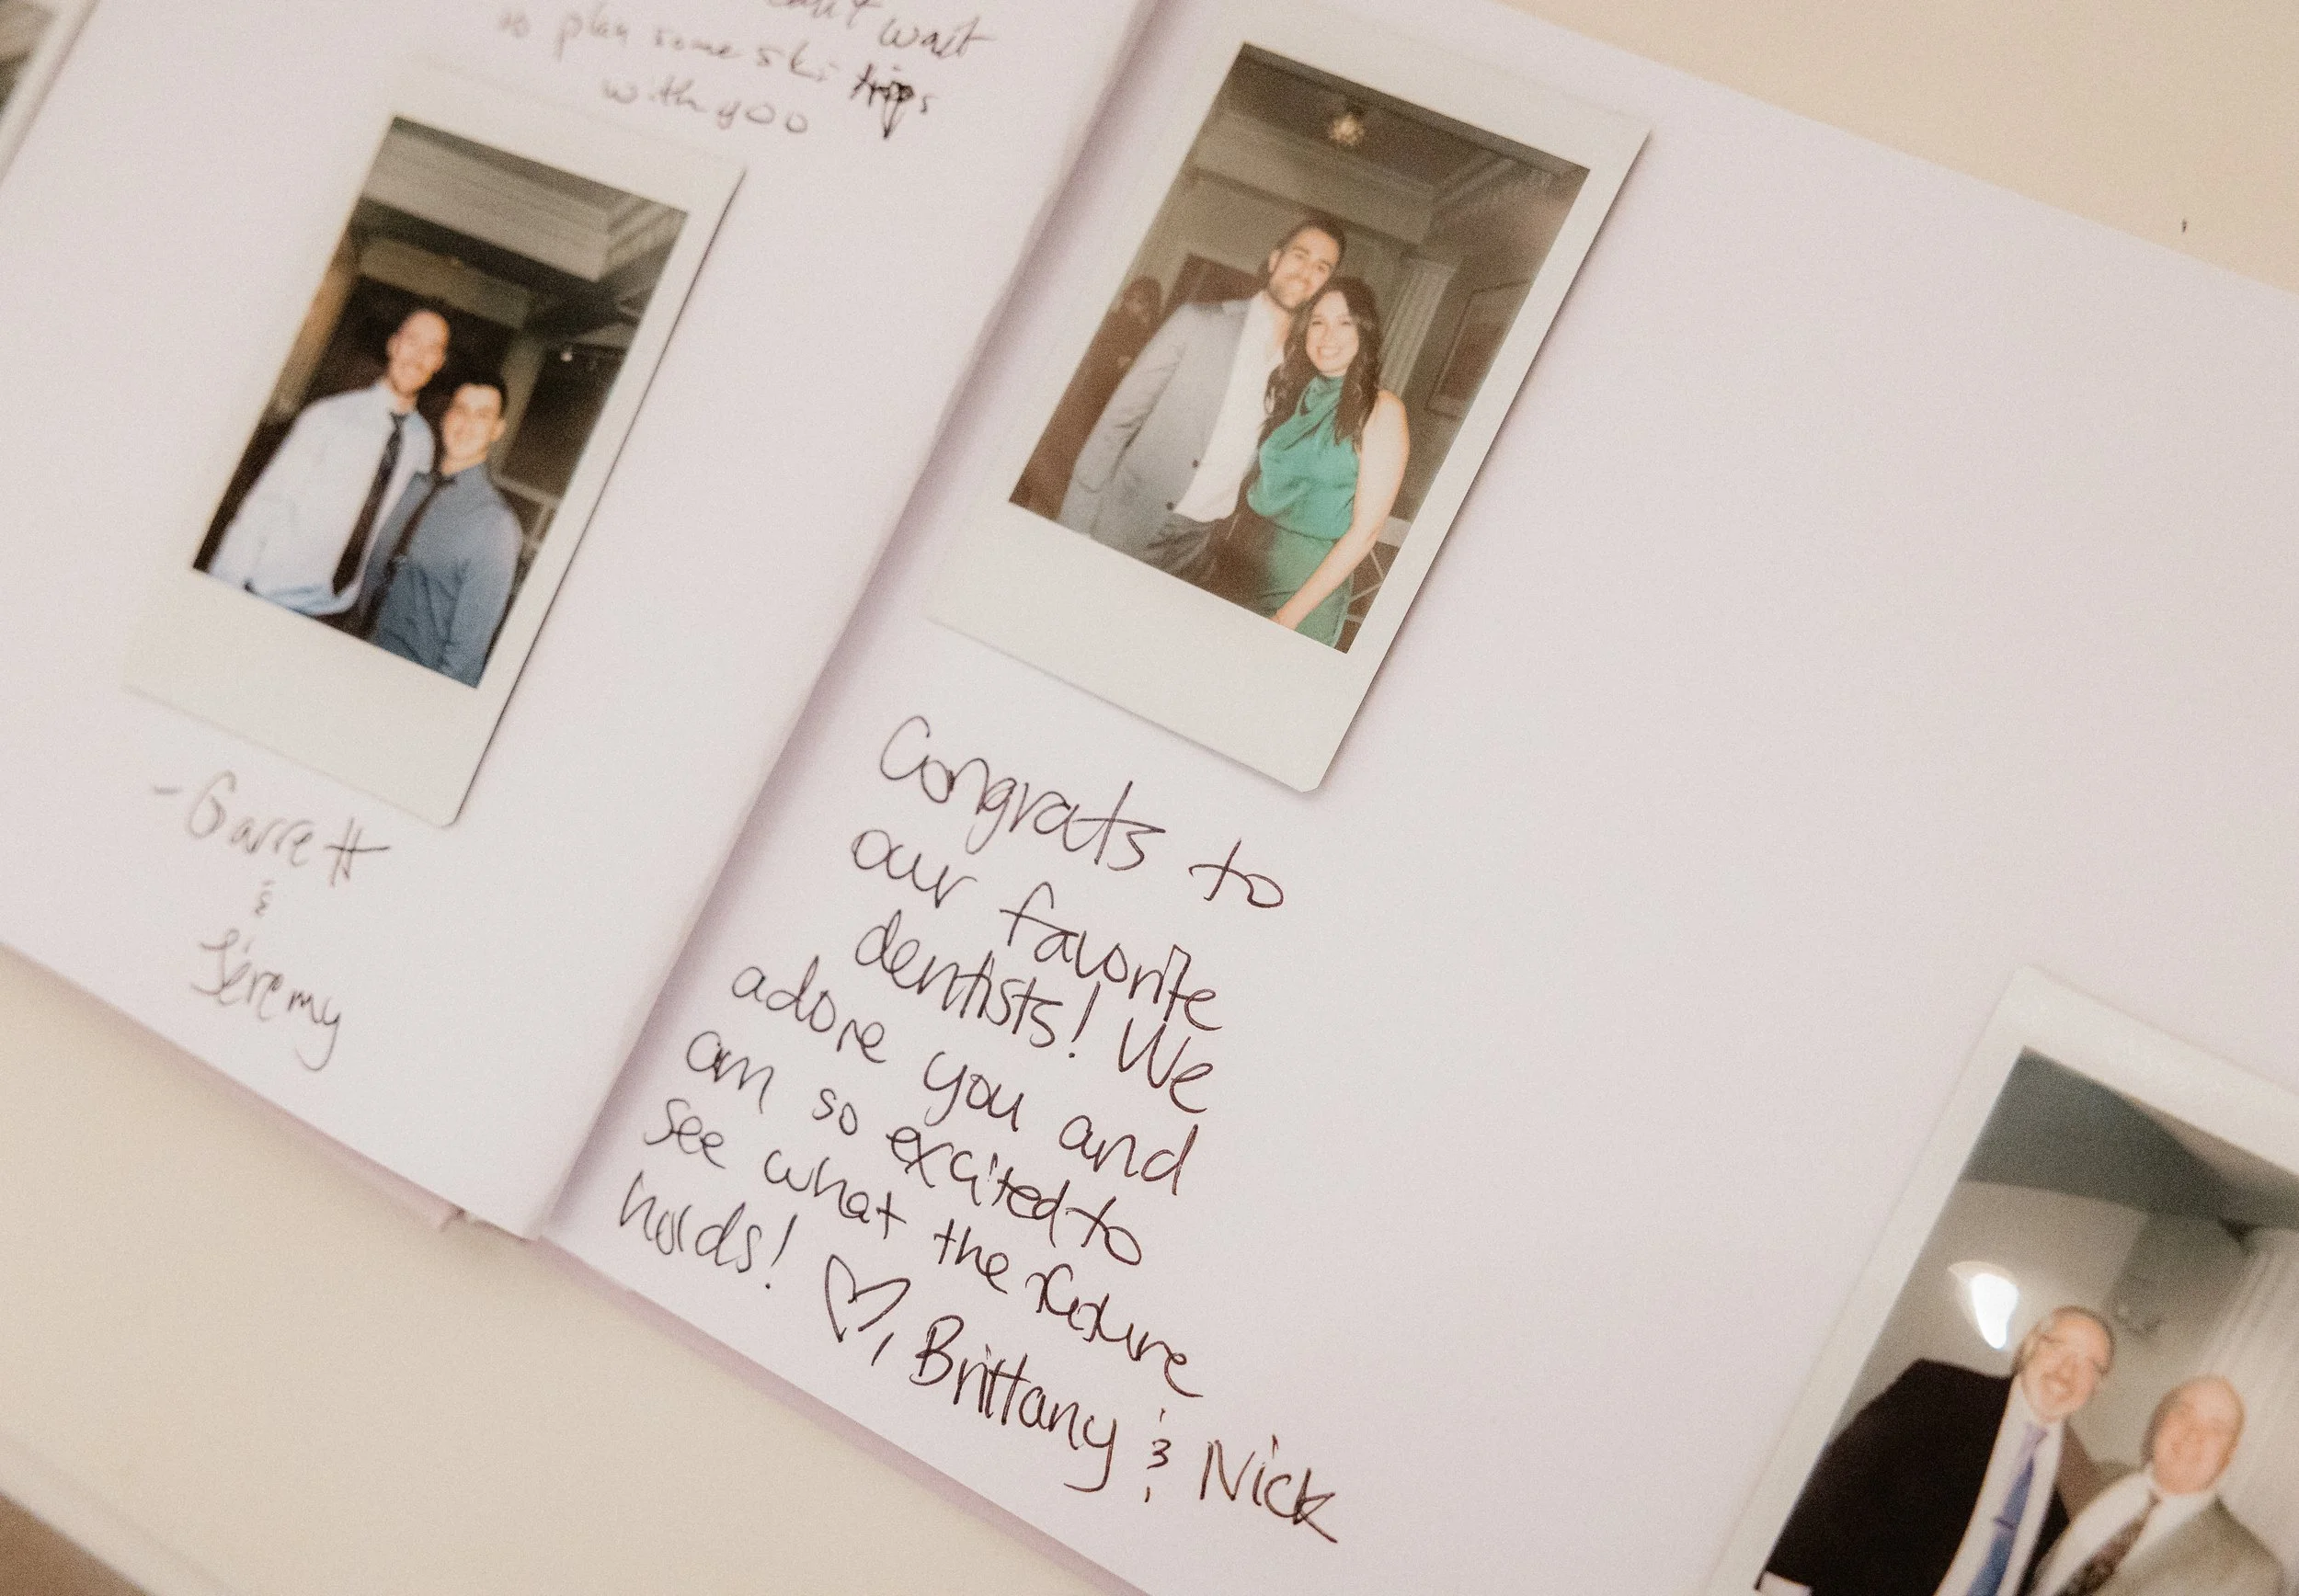 can't wait
to plan some ski trips
with you
- Garrett
&
Jeremy
Congrats to
our favorite
dentists! We
adore you and
am so excited to
see what the future
holds! ♡, Brittany & Nick